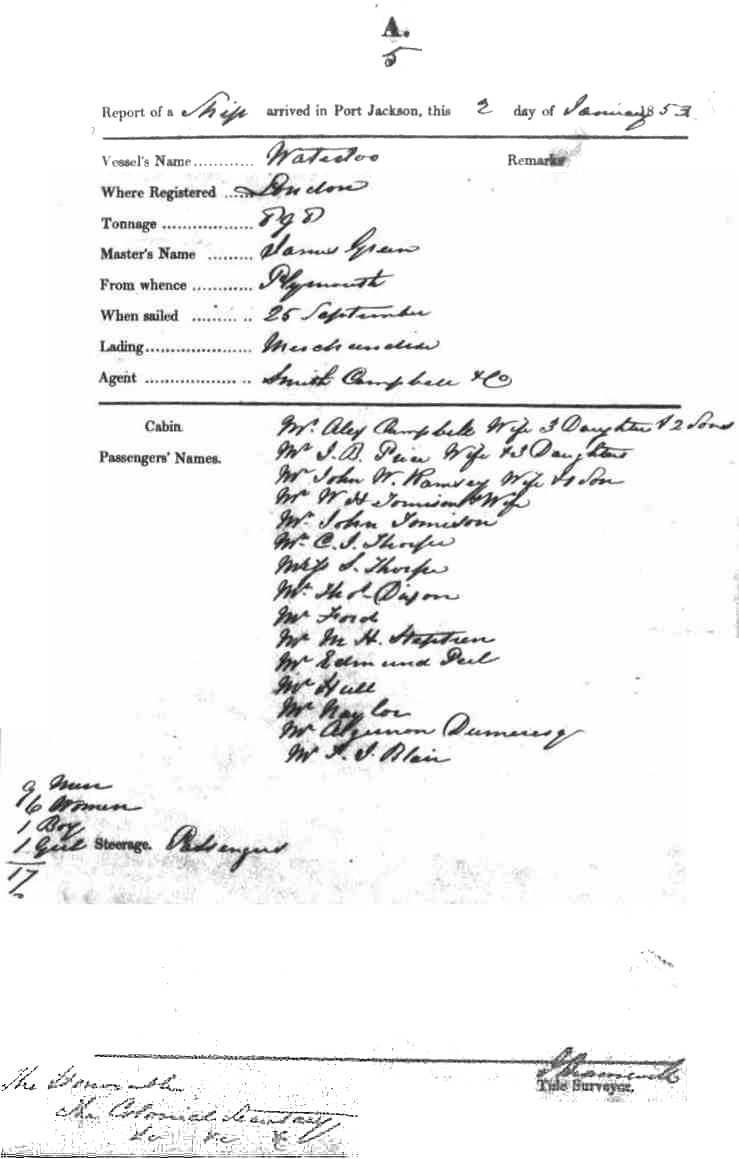 A.
5
Report of a Ship arrived in Port Jackson, this 2 day of January 1853
Vessel's Name ............ Waterloo Remarks
Where Registered ...... London
Tonnage .................. 898
Master's Name ......... James Green
From whence ............ Plymouth
When sailed ............ 25 September
Lading..................... Merchandise
Agent ..................... Smith Campbell & Co
Cabin Mr. Alex Campbell Wife 3 Daughter & 2 Sons
Passengers' Names. Mr J. B. Price Wife & 3 Daughters
Mr John W. Ramsey Wife & 1 Son
Mr W H Tomison & Wife
Mr. John Tomison
Mr. C. J. Thorpe
Miss S. Thorpe
Mr Thos. Dixon
Mr Ford
Mr M. H. Stephen
Mr Edmund Peel
Mr Hull
Mr Naylor
Mr Algernon Dumeresq
Mr F. J. Blair
9 Men
6 Women
1 Boy
1 Girl Steerage. Passengers
17
The Honorable
The Colonial Secretary
&c &c &c
Tide Surveyor.